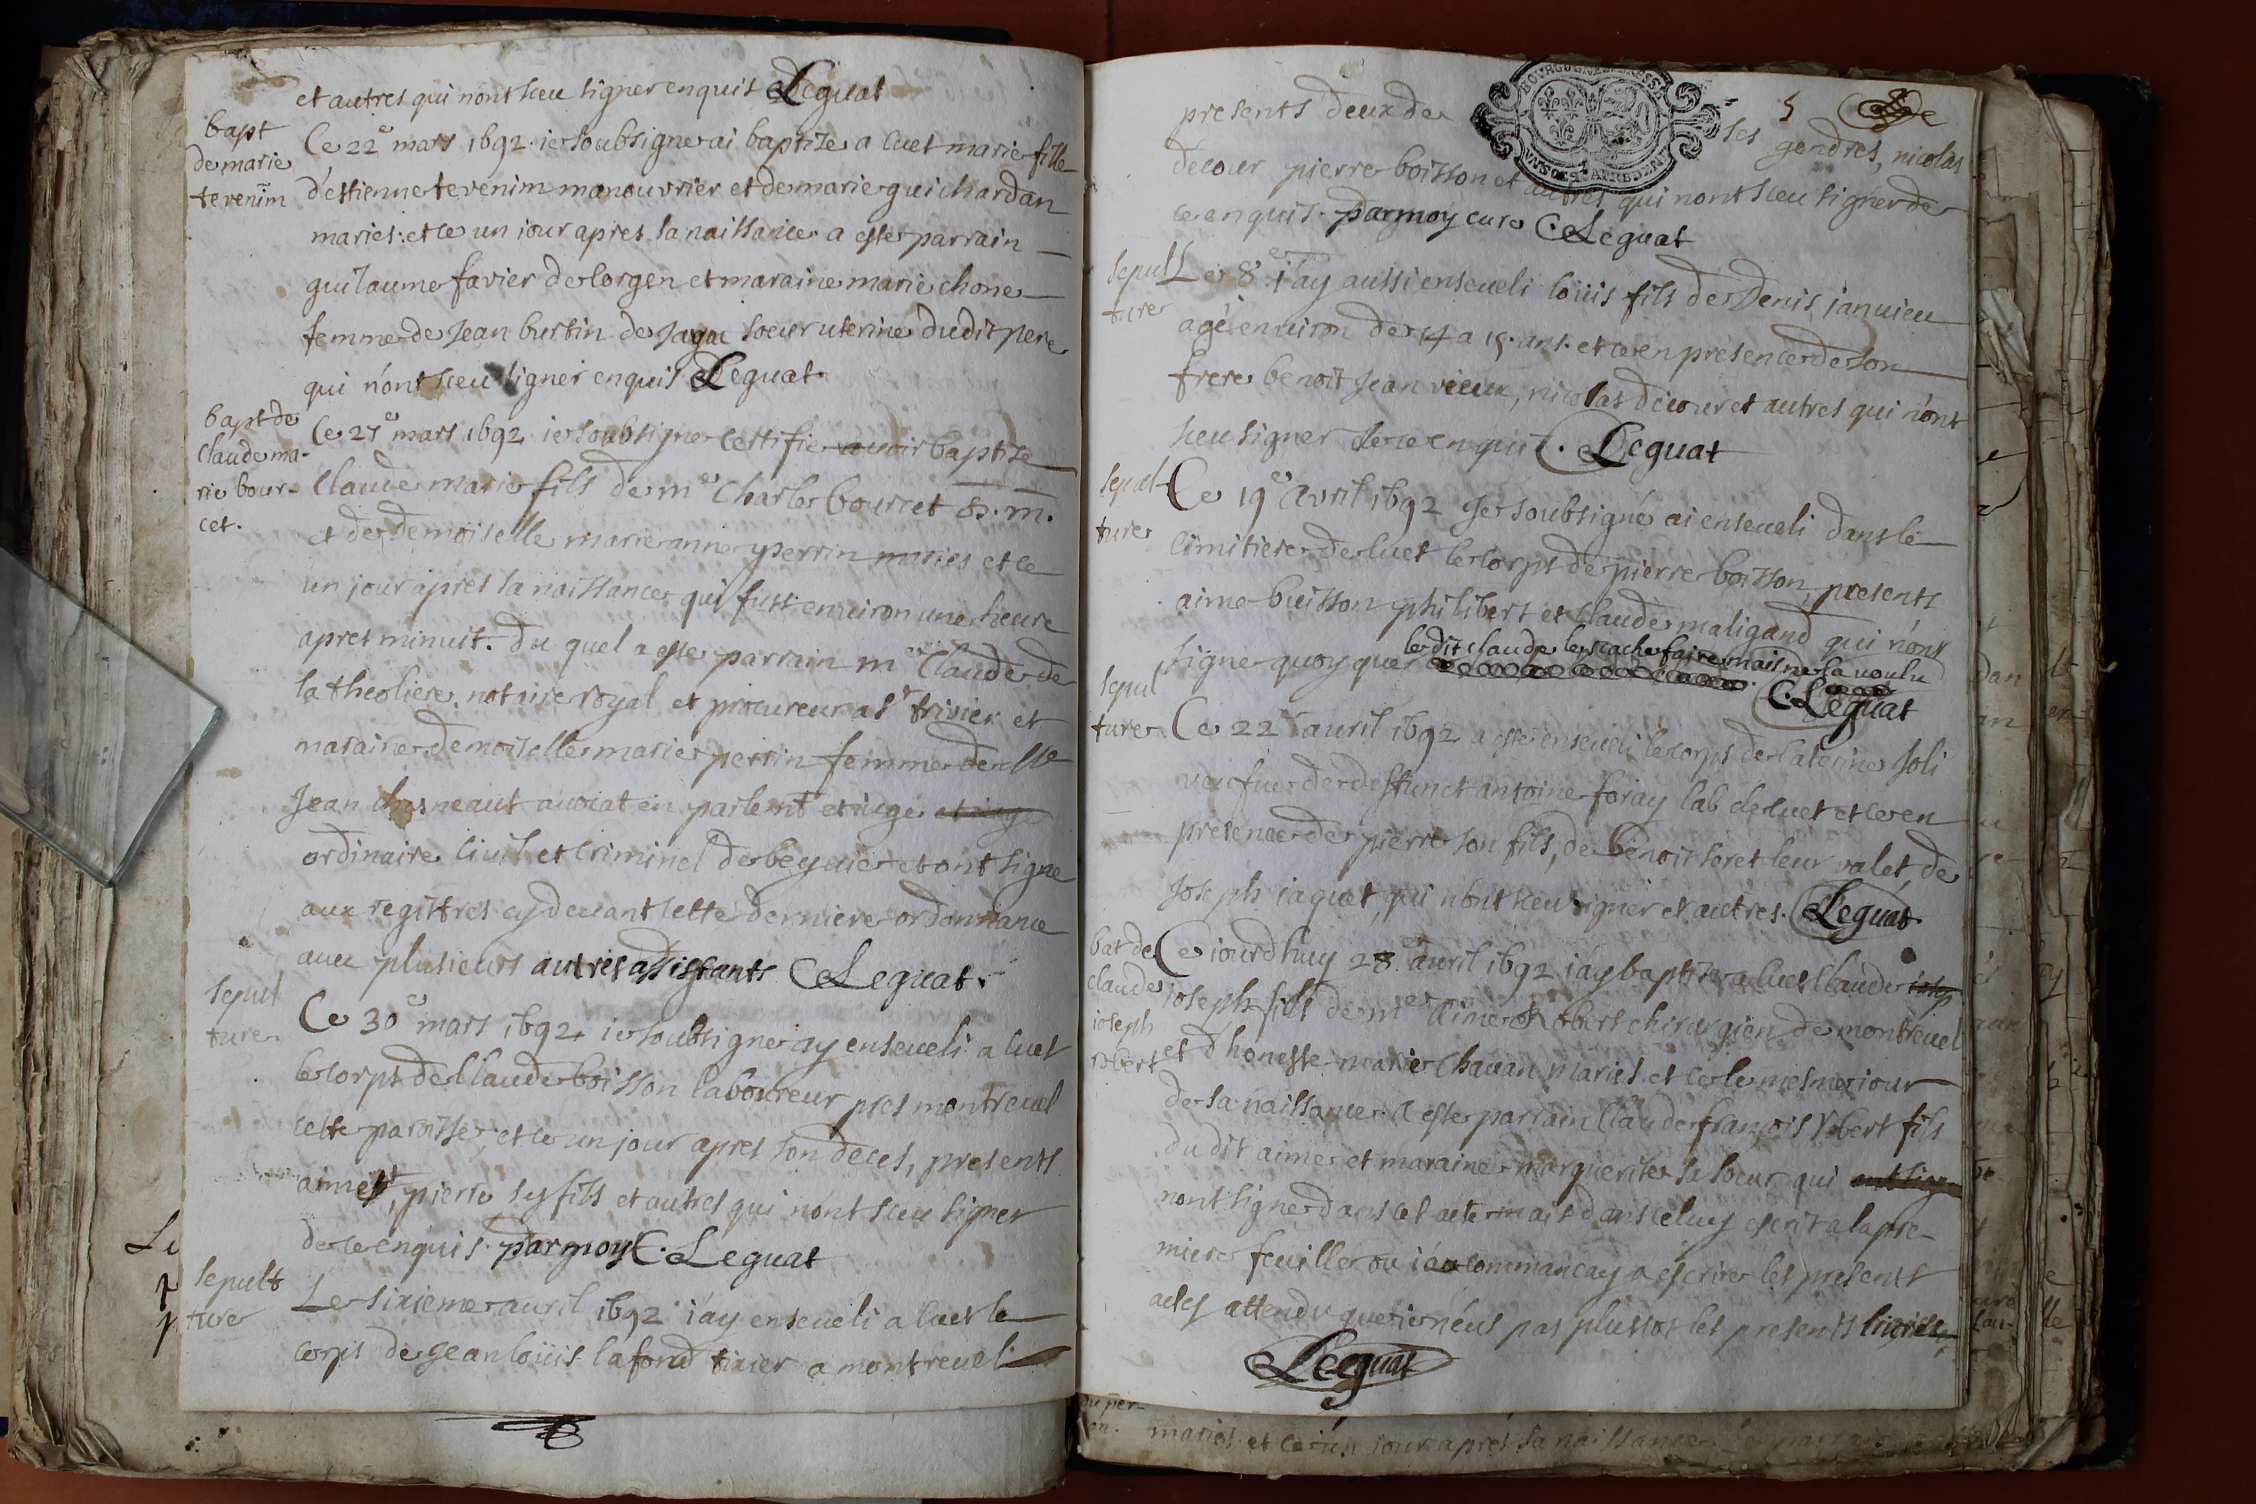 et autres qui nont sceu signer enquis CLeguat
bapt
de marie
tevenim
Ce 22e mars 1692 ie soubsigne ai baptize a cuet marie fille
d'estienne tevenim manouvrier et de marie guichardan
maries et ce un iour apres sa naissance a esté parrain
guilaume favier de lorgen et maraine marie chone
femme de Jean burtin de Jayac soeur uterine dudit pere
qui n'ont sceu signer enquis CLeguat
bapt de
claude ma-
rie bour-
cet.
Ce 27e mars 1692 ie soubsigne certifie avoir baptize
Claude marie fils de me Charles bourcet
et de demoiselle marie anne perrin maries et ce
un jour apres sa naissance qui fust environ une heure
apres minuit. Du quel a esté parrain me Claude de
la theoliere notaire royal et procureur a st trivier et
maraine demoiselle marie perrin femme de
Jean chesneaut avocat en parlemt et iuge et iuge
ordinaire civil et criminel de beyvier et ont signe
aux registres cy devant cette derniere ordonnance
avec plusieurs autres assistants CLeguat.
sepul
ture
Ce 30e mars 1692 ie soubsigne ay enseveli a cuet
le corps de Claude boisson laboureur pres montrevel
cette paroisse, et ce un jour apres son deces, presents
aime et, pierre sey fils et autres qui n'ont sceu signer
de ce enquis. par moy C. Leguat
sepult
ture
Le sixieme avril 1692 i'ay enseveli a cuet le
corps de Jean loüis lafond tixier a montrevel
presents deux de ses gendres, nicolas
5
decour pierre boisson et autres qui nont sceu signer de
ce enquis. par moy cure C. Leguat
sepul
ture
Le 8e i'ay aussi enseveli loüis fils de Denis janvieu
agé environ de 14 a 15 ans. et ce en presence de son
frere benoit Jean vieux, nicolas decour et autres qui n'ont
sceu signer de ce enquis. CLeguat
sepul-
ture
Ce 19e avril 1692 Je soubsigné ai enseveli dans le
cimitiere de cuet le corps de pierre boisson, presents
aime buisson philibert et claude maligand qui n'ont
ledit claude le scache faire mais ne la voulu
signe quoy que
C. Leguat
sepul
ture
Ce 22e avril 1692 a esté enseveli le corps de Caterine Joli
veufue de deffunct antoine foray lab de cuet et ce en
presence de pierre son fils, de benoit soret leur valet, de
Joseph iaquet, qui n'ont sceu signer et autres. CLeguat
bat de
claude
ioseph
robert
Ce iourdhuy 28e avril 1692 i'ay baptize a cuet Claude iosep
ioseph fils de me Aime Robert chirurgien de montrevel
et d'honeste marie Chavan maries et ce le mesme iour
de sa naissance. A esté parrain Claude françois Robert fils
du dit aime et maraine marguerite sa soeur qui ont signe
n'ont signe dans cet acte mais dans celuy escrit a la pre-
miere feuille ou i'ai commançay a escrire les presents
actes attendu que ie n'eus pas plustot les presents livres
CLeguat
maries et ce un iour apres sa naissance